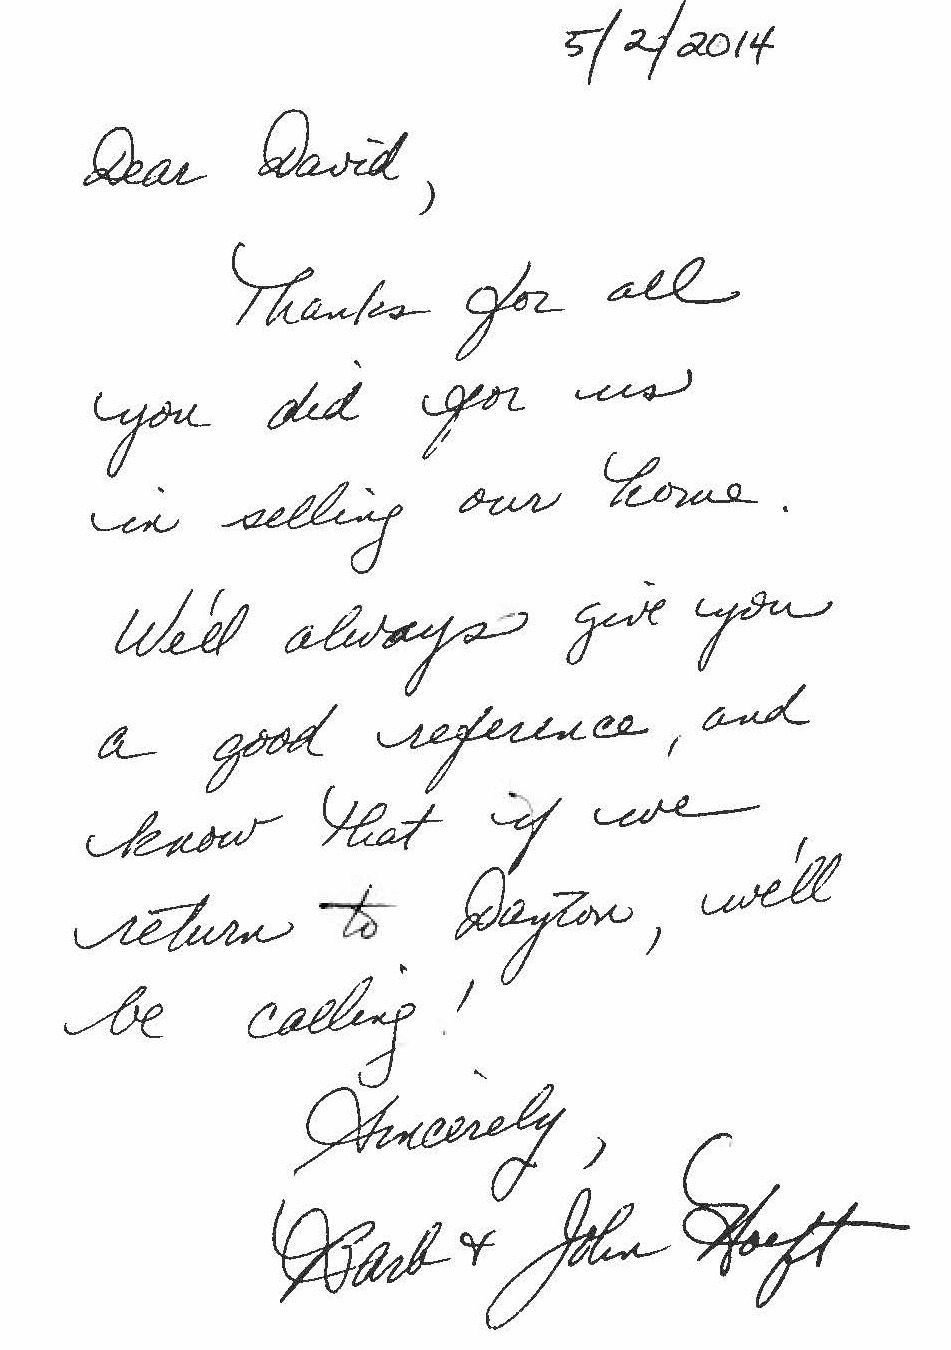 5/2/2014
Dear David,
Thanks for all
you did for us
in selling our home.
We'll always give you
a good reference, and
know that if we
return to Dayton, we'll
be calling!
Sincerely,
Barb & John